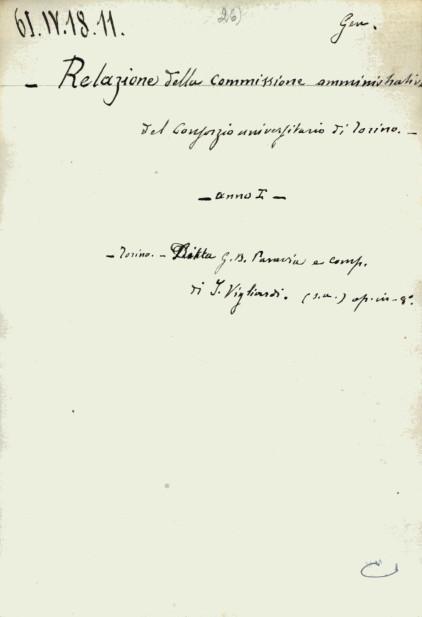 61.IV.18.11.
26)
Gen.
- Relazione della commissione amministrativa
del Consorzio universitario di Torino. -
- anno I -
- Torino. - Ditta G. B. Paravia e comp.
di I. Vigliardi. (s.a.) op. in-8°.